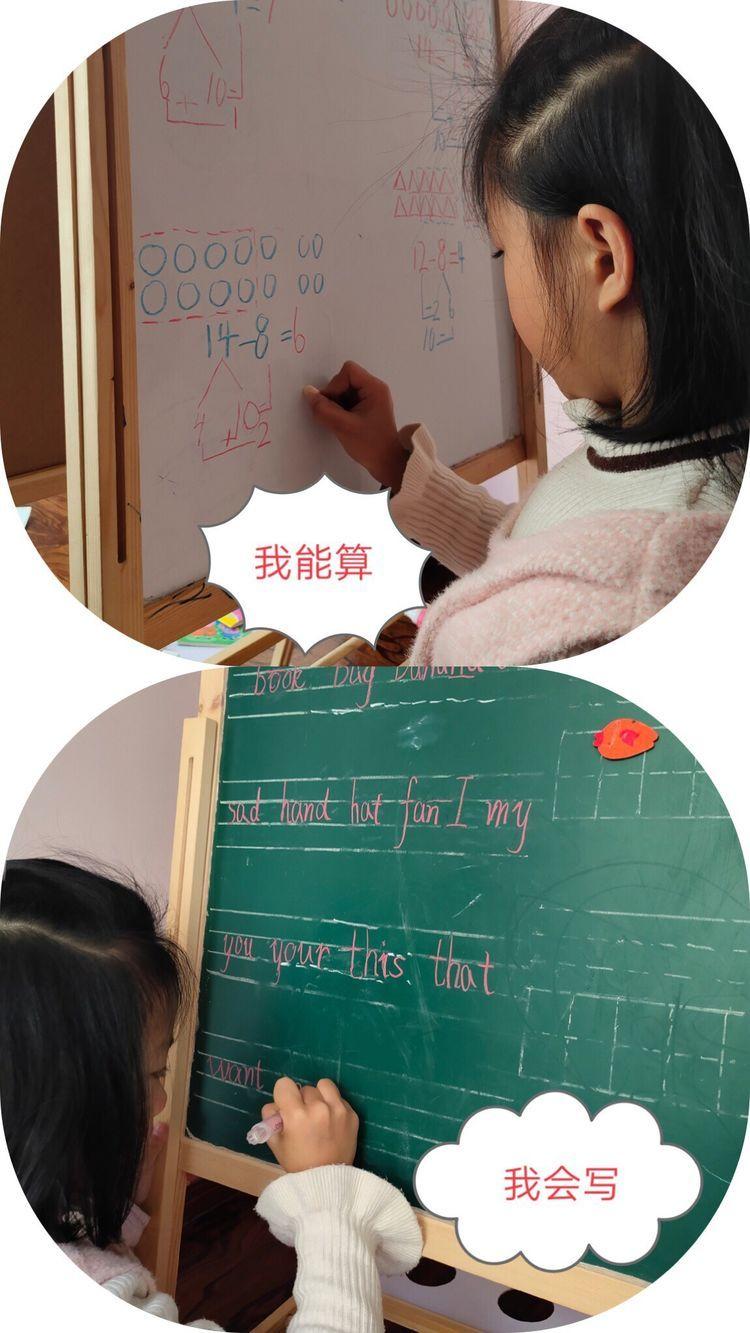 6 + 10=
1
14-8=6
4 + 10=
2
12-8=4
2 6
我能算
book bug banana
sad hand hat fan I my
you your this that
want
我会写